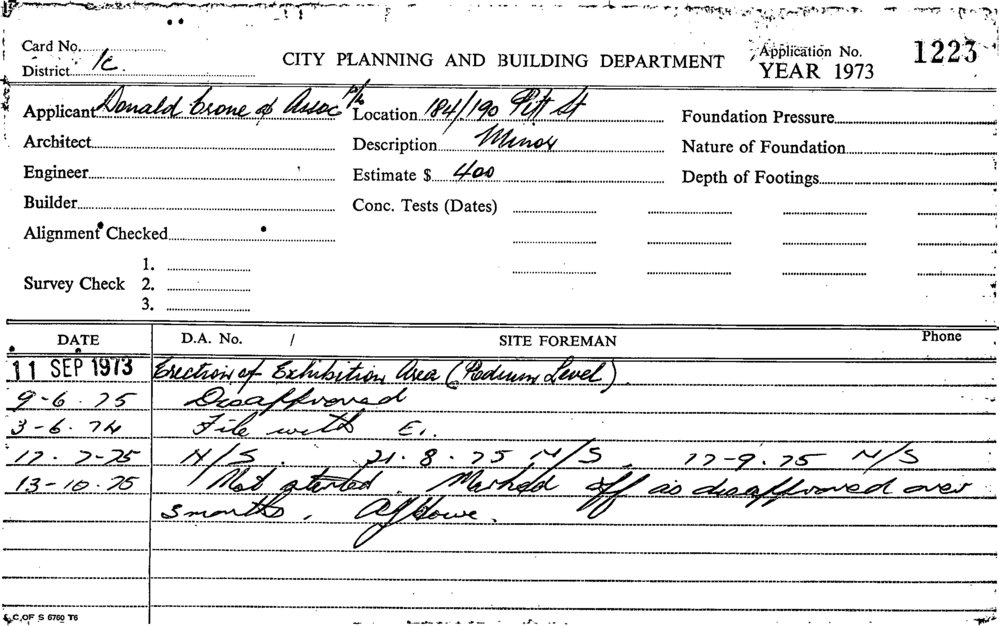 Card No.
District 1C
CITY PLANNING AND BUILDING DEPARTMENT
Application No. 1223
YEAR 1973
Applicant Donald Crone & Assoc P/L
Location 184/190 Pitt St
Foundation Pressure
Architect
Description Minor
Nature of Foundation
Engineer
Estimate $ 400
Depth of Footings
Builder
Conc. Tests (Dates)
Alignment Checked
1.
Survey Check 2.
3.
DATE D.A. No. / SITE FOREMAN Phone
11 SEP 1973 Erection of Exhibition Area (Podium Level)
9-6.75 Disapproved
3-6.74 File with E1.
17.7-75 N/S. 21.8.75 N/S. 17-9.75 N/S
13-10.75 Not started. Marked off as disapproved over
3 months.
C.OF S 6760 T6